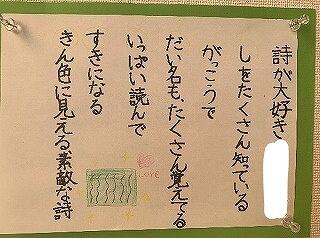 詩が大好き
しをたくさん知っている
がっこうで
だい名も、たくさん覚えてる
いっぱい読んで
すきになる
きん色に見える素敵な詩
LOVE